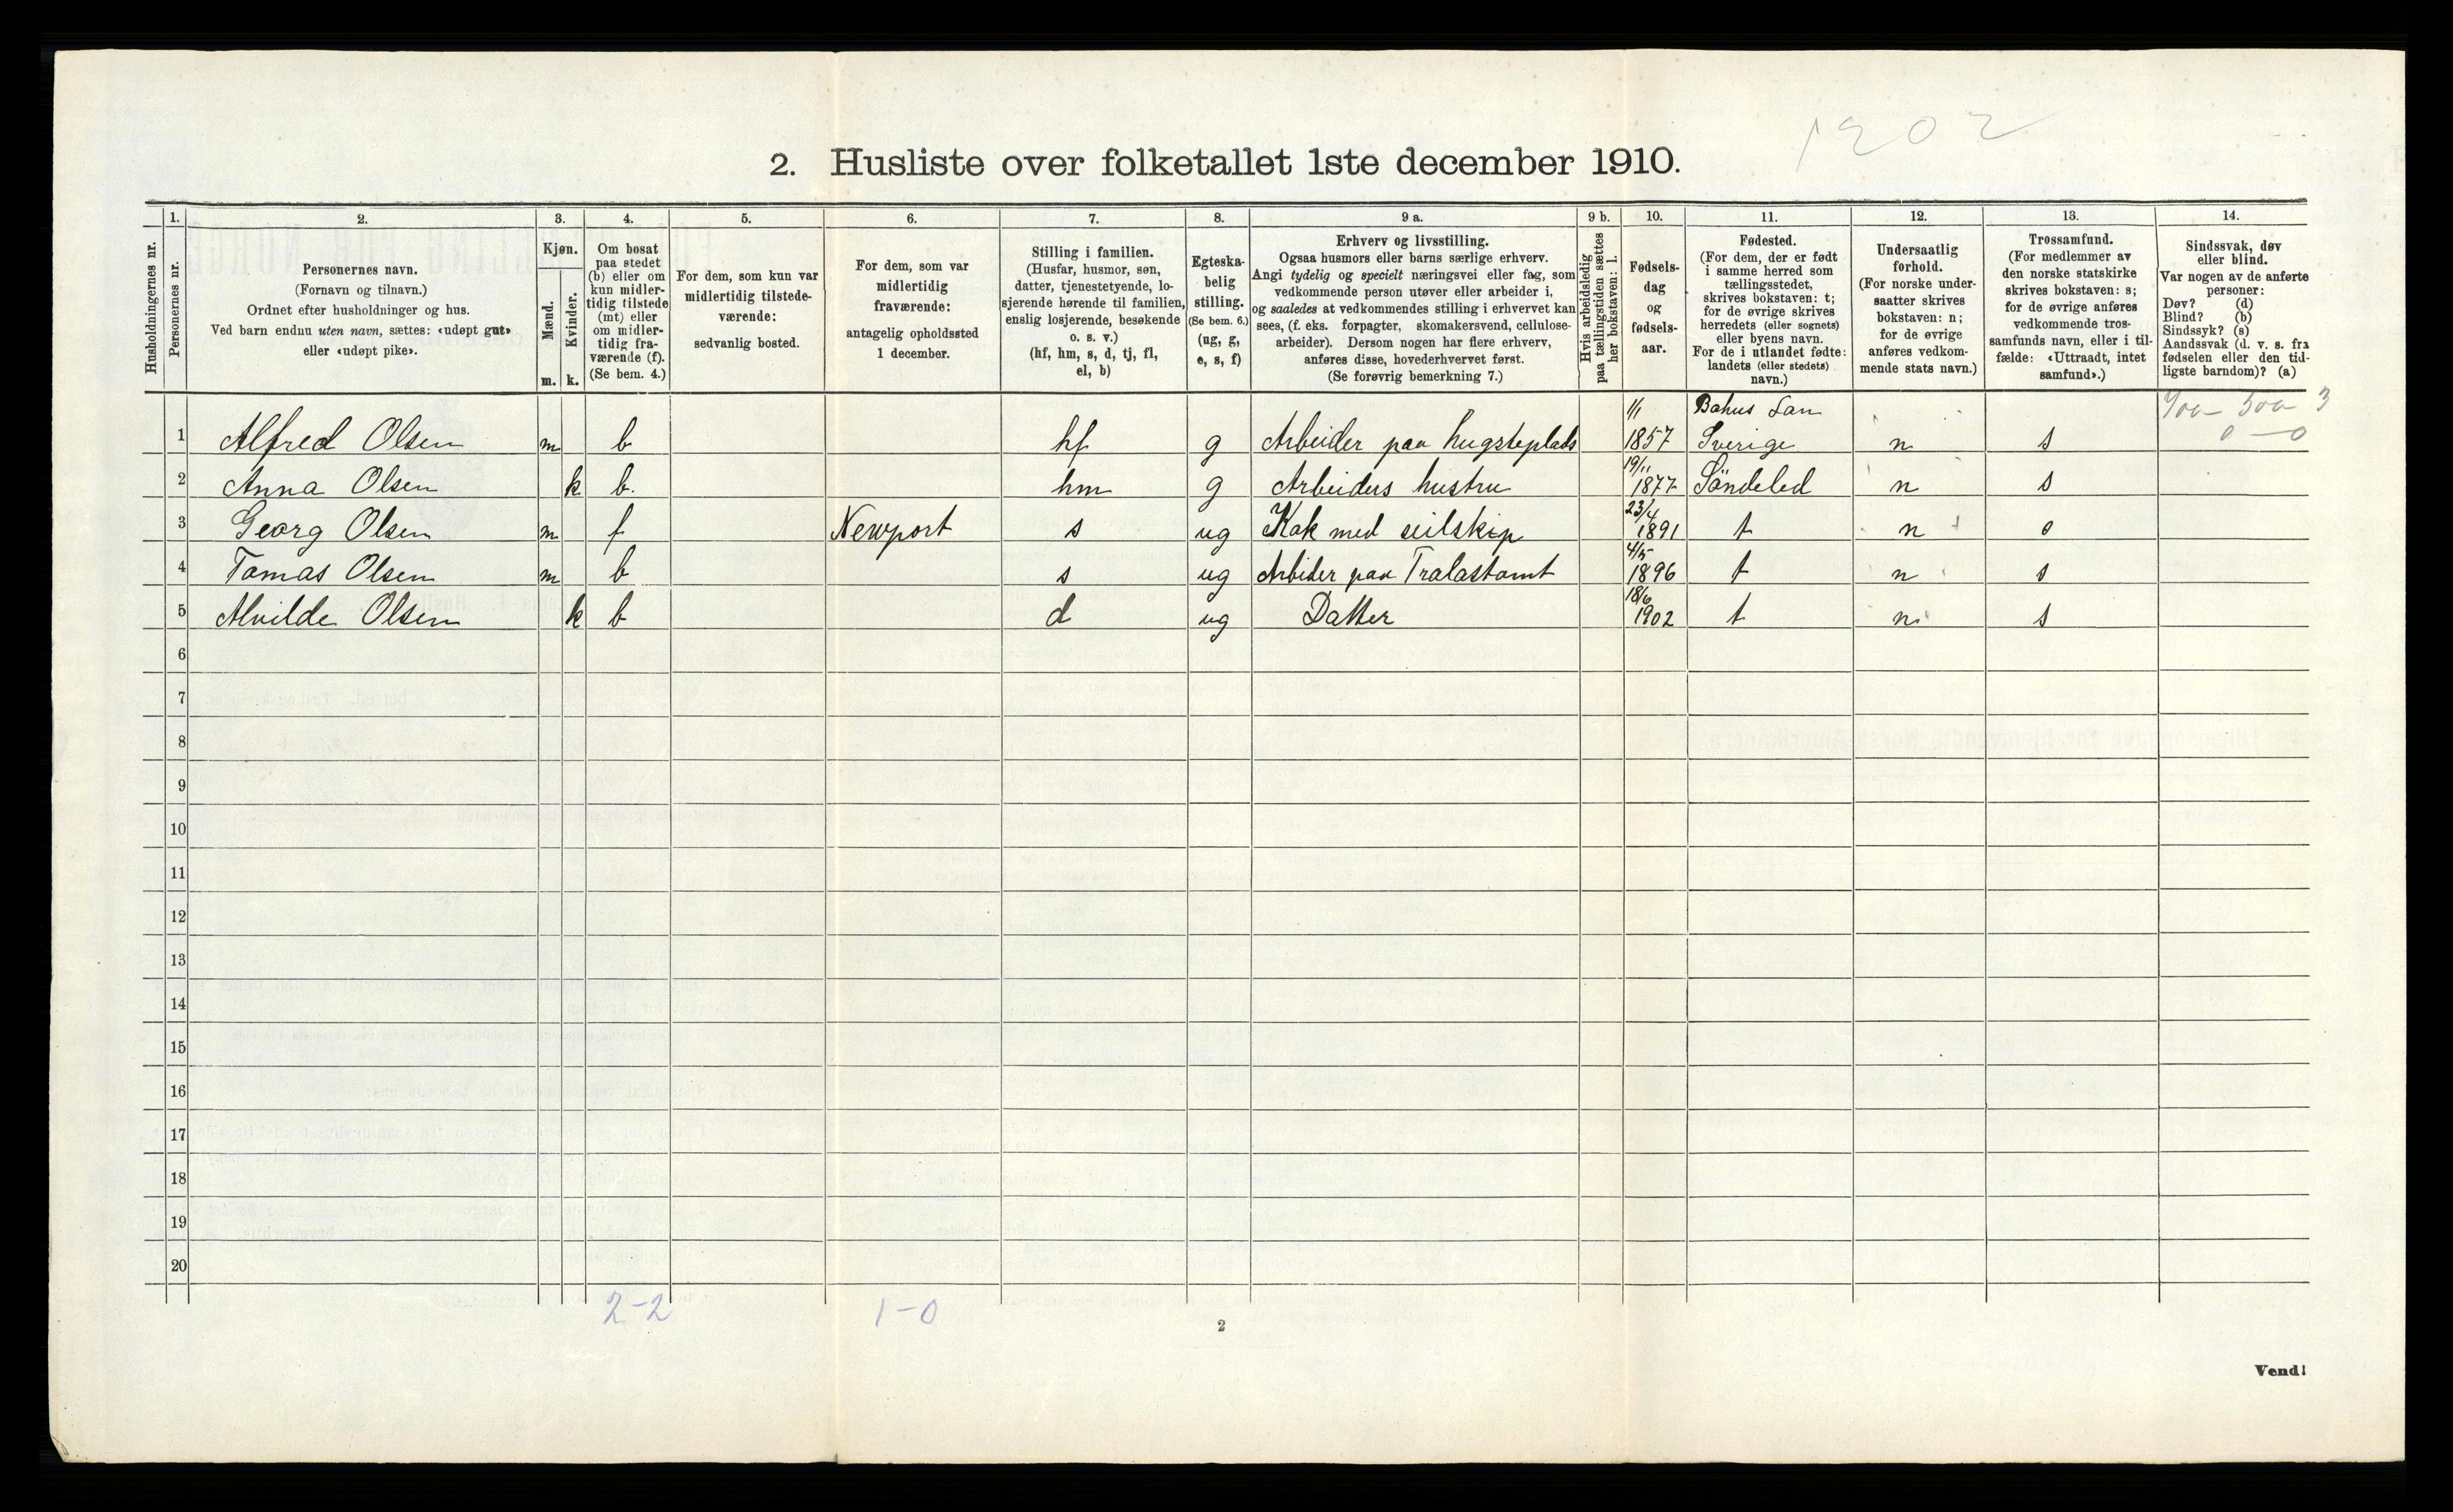 1902
2. Husliste over folketallet 1ste december 1910.
Husholdningernes nr.
1.
Personernes nr.
2.
Personernes navn.
(Fornavn og tilnavn.)
Ordnet efter husholdninger og hus.
Ved barn endnu uten navn, sættes: «udøpt gut»
eller «udøpt pike».
3.
Kjøn.
Mænd.
Kvinder.
m. k.
4.
Om bosat
paa stedet
(b) eller om
kun midler-
tidig tilstede
(mt) eller
om midler-
tidig fra-
værende (f).
(Se bem. 4.)
5.
For dem, som kun var
midlertidig tilstede-
værende:
sedvanlig bosted.
6.
For dem, som var
midlertidig
fraværende:
antagelig opholdssted
1 december.
7.
Stilling i familien.
(Husfar, husmor, søn,
datter, tjenestetyende, lo-
sjerende hørende til familien,
enslig losjerende, besøkende
o. s. v.)
(hf, hm, s, d, tj, fl,
el, b)
8.
Egteska-
belig
stilling.
(Se bem. 6.)
(ug, g,
e, s, f)
9 a.
Erhverv og livsstilling.
Ogsaa husmors eller barns særlige erhverv.
Angi tydelig og specielt næringsvei eller fag, som
vedkommende person utøver eller arbeider i,
og saaledes at vedkommendes stilling i erhvervet kan
sees, (f. eks. forpagter, skomakersvend, cellulose-
arbeider). Dersom nogen har flere erhverv,
anføres disse, hovederhvervet først.
(Se forøvrig bemerkning 7.)
9 b.
Hvis arbeidsledig
paa tællingstiden sættes
her bokstaven: l.
10.
Fødsels-
dag
og
fødsels-
aar.
11.
Fødested.
(For dem, der er født
i samme herred som
tællingsstedet,
skrives bokstaven: t;
for de øvrige skrives
herredets (eller sognets)
eller byens navn.
For de i utlandet fødte:
landets (eller stedets)
navn.)
12.
Undersaatlig
forhold.
(For norske under-
saatter skrives
bokstaven: n;
for de øvrige
anføres vedkom-
mende stats navn.)
13.
Trossamfund.
(For medlemmer av
den norske statskirke
skrives bokstaven: s;
for de øvrige anføres
vedkommende tros-
samfunds navn, eller i til-
fælde: «Uttraadt, intet
samfund».)
14.
Sindssvak, døv
eller blind.
Var nogen av de anførte
personer:
Døv? (d)
Blind? (b)
Sindssyk? (s)
Aandssvak (d. v. s. fra
fødselen eller den tid-
ligste barndom)? (a)
1/1 Bahus Lan
0 - 0
1 Alfred Olsen m b hf g Arbeider paa hugsteplads 1857 Sverige n s
19/11
2 Anna Olsen k b. hm g Arbeiders hustru 1877 Söndeled n s
23/4
3 Georg Olsen m f Newport s ug Kok med seilskip 1891 t n s
4/5
4 Tomas Olsen m b s ug Arbider paa Tralastomt 1896 t n s
18/6
5 Alvilde Olsen k b d ug Datter 1902 t n s
6
7
8
9
10
11
12
13
14
15
16
17
18
19
20
2-2 1-0
2
Vend!